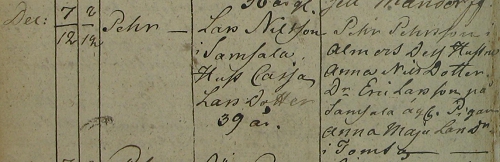 Dec: 7/12 2/12 Pehr — Lars Nilsson
i Samsala
Hust Cajsa
Lars Dotter
39 år.
Pehr Pehrsson i
Almers Dess Hustru
Anna Nils Dotter
Dr. Eric Larsson på
Samsala äg.
Anna Maja Lars Dr
i Tomta